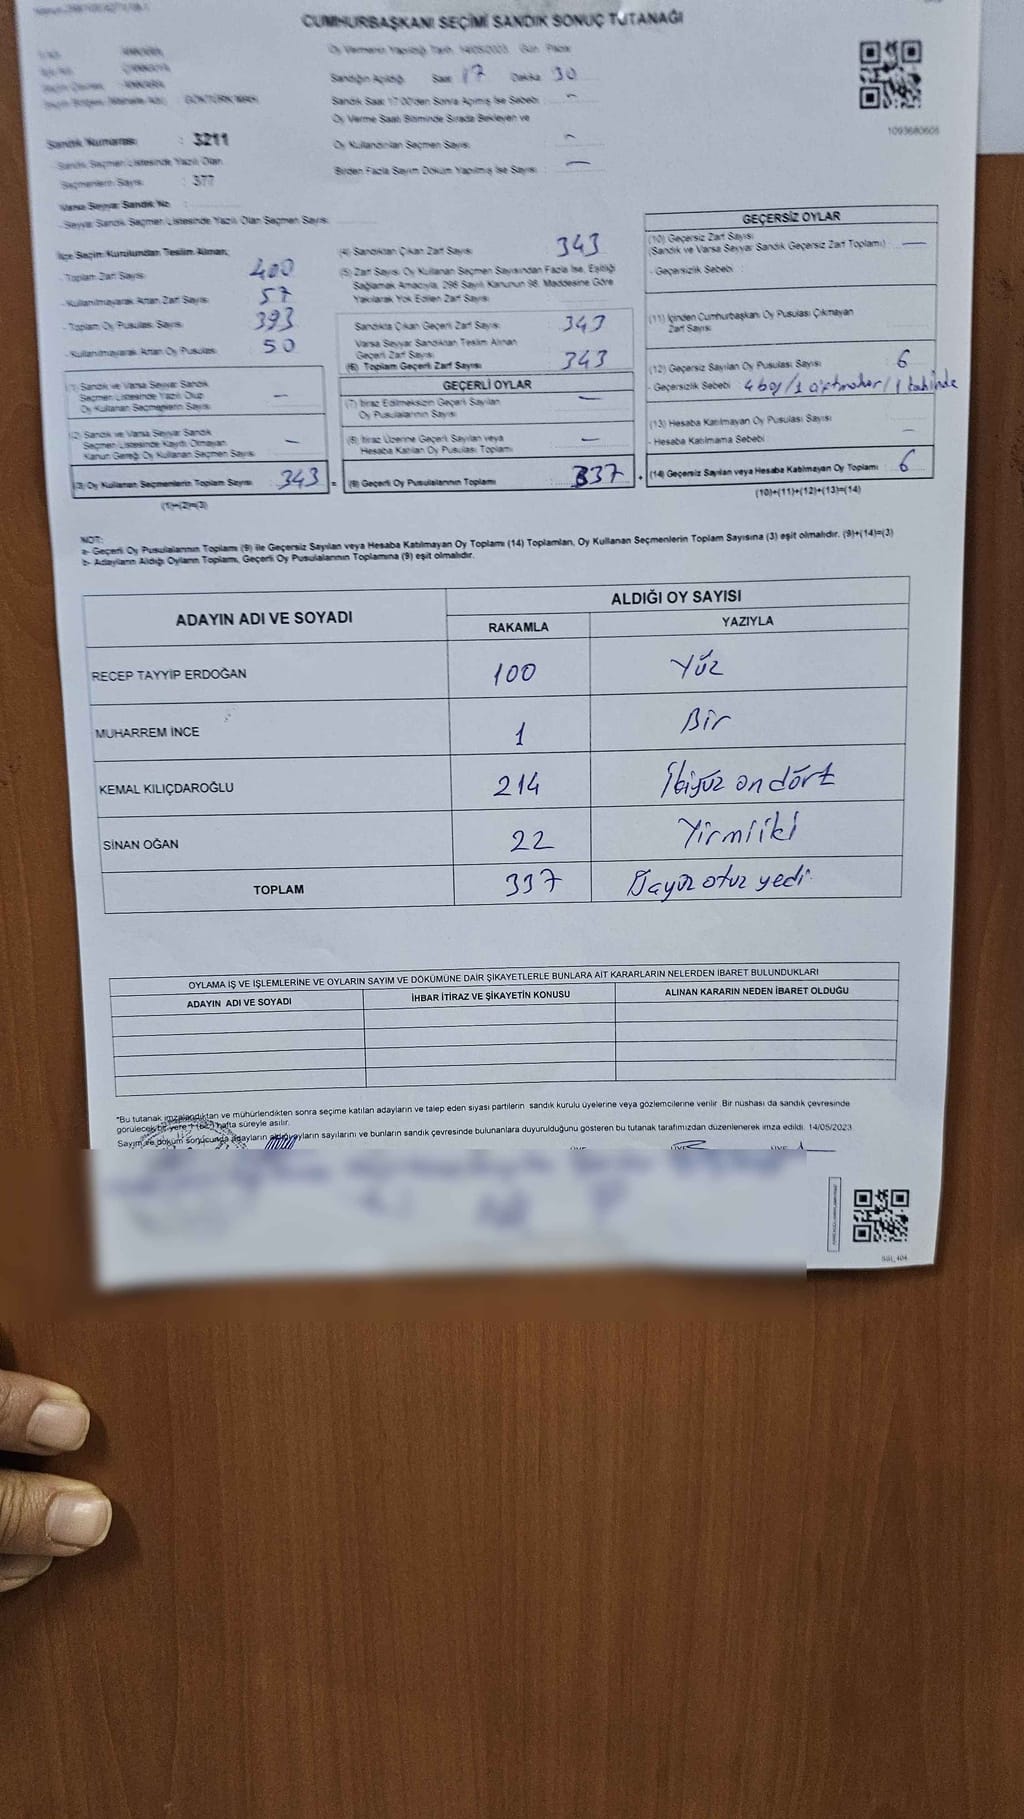 CUMHURBAŞKANI SEÇİMİ SANDIK SONUÇ TUTANAĞI
Oy Vermenin Yapıldığı Tarih: 14/05/2023 Gün: Pazar
Sandığın Açıldığı Saat 17 Dakika 30
GÖKTÜRK MAH.
Sandık Saat 17.00'den Sonra Açılmış İse Sebebi: -
Oy Verme Saati Bitiminde Sırada Bekleyen ve
Oy Kullandırılan Seçmen Sayısı: -
Birden Fazla Sayım Döküm Yapılmış İse Sayısı: -
1093680605
Sandık Numarası : 3211
Sandık Seçmen Listesinde Yazılı Olan
Seçmenlerin Sayısı : 377
Varsa Seyyar Sandık No :
- Seyyar Sandık Seçmen Listesinde Yazılı Olan Seçmen Sayısı:
İlçe Seçim Kurulundan Teslim Alınan;
- Toplam Zarf Sayısı 400
- Kullanılmayarak Artan Zarf Sayısı 57
- Toplam Oy Pusulası Sayısı 393
- Kullanılmayarak Artan Oy Pusulası 50
(1) Sandık ve Varsa Seyyar Sandık
Seçmen Listesinde Yazılı Olup
Oy Kullanan Seçmenlerin Sayısı -
(2) Sandık ve Varsa Seyyar Sandık
Seçmen Listesinde Kaydı Olmayan
Kanun Gereği Oy Kullanan Seçmen Sayısı -
(3) Oy Kullanan Seçmenlerin Toplam Sayısı 343 =
(1)+(2)=(3)
(4) Sandıktan Çıkan Zarf Sayısı 343
(5) Zarf Sayısı Oy Kullanan Seçmen Sayısından Fazla İse, Eşitliği
Sağlamak Amacıyla, 298 Sayılı Kanunun 98. Maddesine Göre
Yakılarak Yok Edilen Zarf Sayısı
Sandıkta Çıkan Geçerli Zarf Sayısı 343
Varsa Seyyar Sandıktan Teslim Alınan
Geçerli Zarf Sayısı
(6) Toplam Geçerli Zarf Sayısı 343
GEÇERLİ OYLAR
(7) İtiraz Edilmeksizin Geçerli Sayılan
Oy Pusulalarının Sayısı -
(8) İtiraz Üzerine Geçerli Sayılan veya
Hesaba Katılan Oy Pusulası Toplamı -
(9) Geçerli Oy Pusulalarının Toplamı 337 +
GEÇERSİZ OYLAR
(10) Geçersiz Zarf Sayısı
(Sandık ve Varsa Seyyar Sandık Geçersiz Zarf Toplamı) -
- Geçersizlik Sebebi :
(11) İçinden Cumhurbaşkanı Oy Pusulası Çıkmayan
Zarf Sayısı
(12) Geçersiz Sayılan Oy Pusulası Sayısı 6
- Geçersizlik Sebebi : 4 boş / 1 çift mühür / 1
(13) Hesaba Katılmayan Oy Pusulası Sayısı -
- Hesaba Katılmama Sebebi
(14) Geçersiz Sayılan veya Hesaba Katılmayan Oy Toplamı 6
(10)+(11)+(12)+(13)=(14)
NOT:
a- Geçerli Oy Pusulalarının Toplamı (9) ile Geçersiz Sayılan veya Hesaba Katılmayan Oy Toplamı (14) Toplamları, Oy Kullanan Seçmenlerin Toplam Sayısına (3) eşit olmalıdır. (9)+(14)=(3)
b- Adayların Aldığı Oyların Toplamı, Geçerli Oy Pusulalarının Toplamına (9) eşit olmalıdır.
ADAYIN ADI VE SOYADI ALDIĞI OY SAYISI
RAKAMLA YAZIYLA
RECEP TAYYİP ERDOĞAN 100 Yüz
MUHARREM İNCE 1 Bir
KEMAL KILIÇDAROĞLU 214 İkiyüz ondört
SİNAN OĞAN 22 Yirmiiki
TOPLAM 337 otuz yedi
OYLAMA İŞ VE İŞLEMLERİNE VE OYLARIN SAYIM VE DÖKÜMÜNE DAİR ŞİKAYETLERLE BUNLARA AİT KARARLARIN NELERDEN İBARET BULUNDUKLARI
ADAYIN ADI VE SOYADI İHBAR İTİRAZ VE ŞİKAYETİN KONUSU ALINAN KARARIN NEDEN İBARET OLDUĞU
*Bu tutanak imzalandıktan ve mühürlendikten sonra seçime katılan adayların ve talep eden siyasi partilerin sandık kurulu üyelerine veya gözlemcilerine verilir. Bir nüshası da sandık çevresinde
görülecek bir yere 1 (bir) hafta süreyle asılır.
Sayım ve döküm sonucunda adayların aldığı oyların sayılarını ve bunların sandık çevresinde bulunanlara duyurulduğunu gösteren bu tutanak tarafımızdan düzenlenerek imza edildi. 14/05/2023